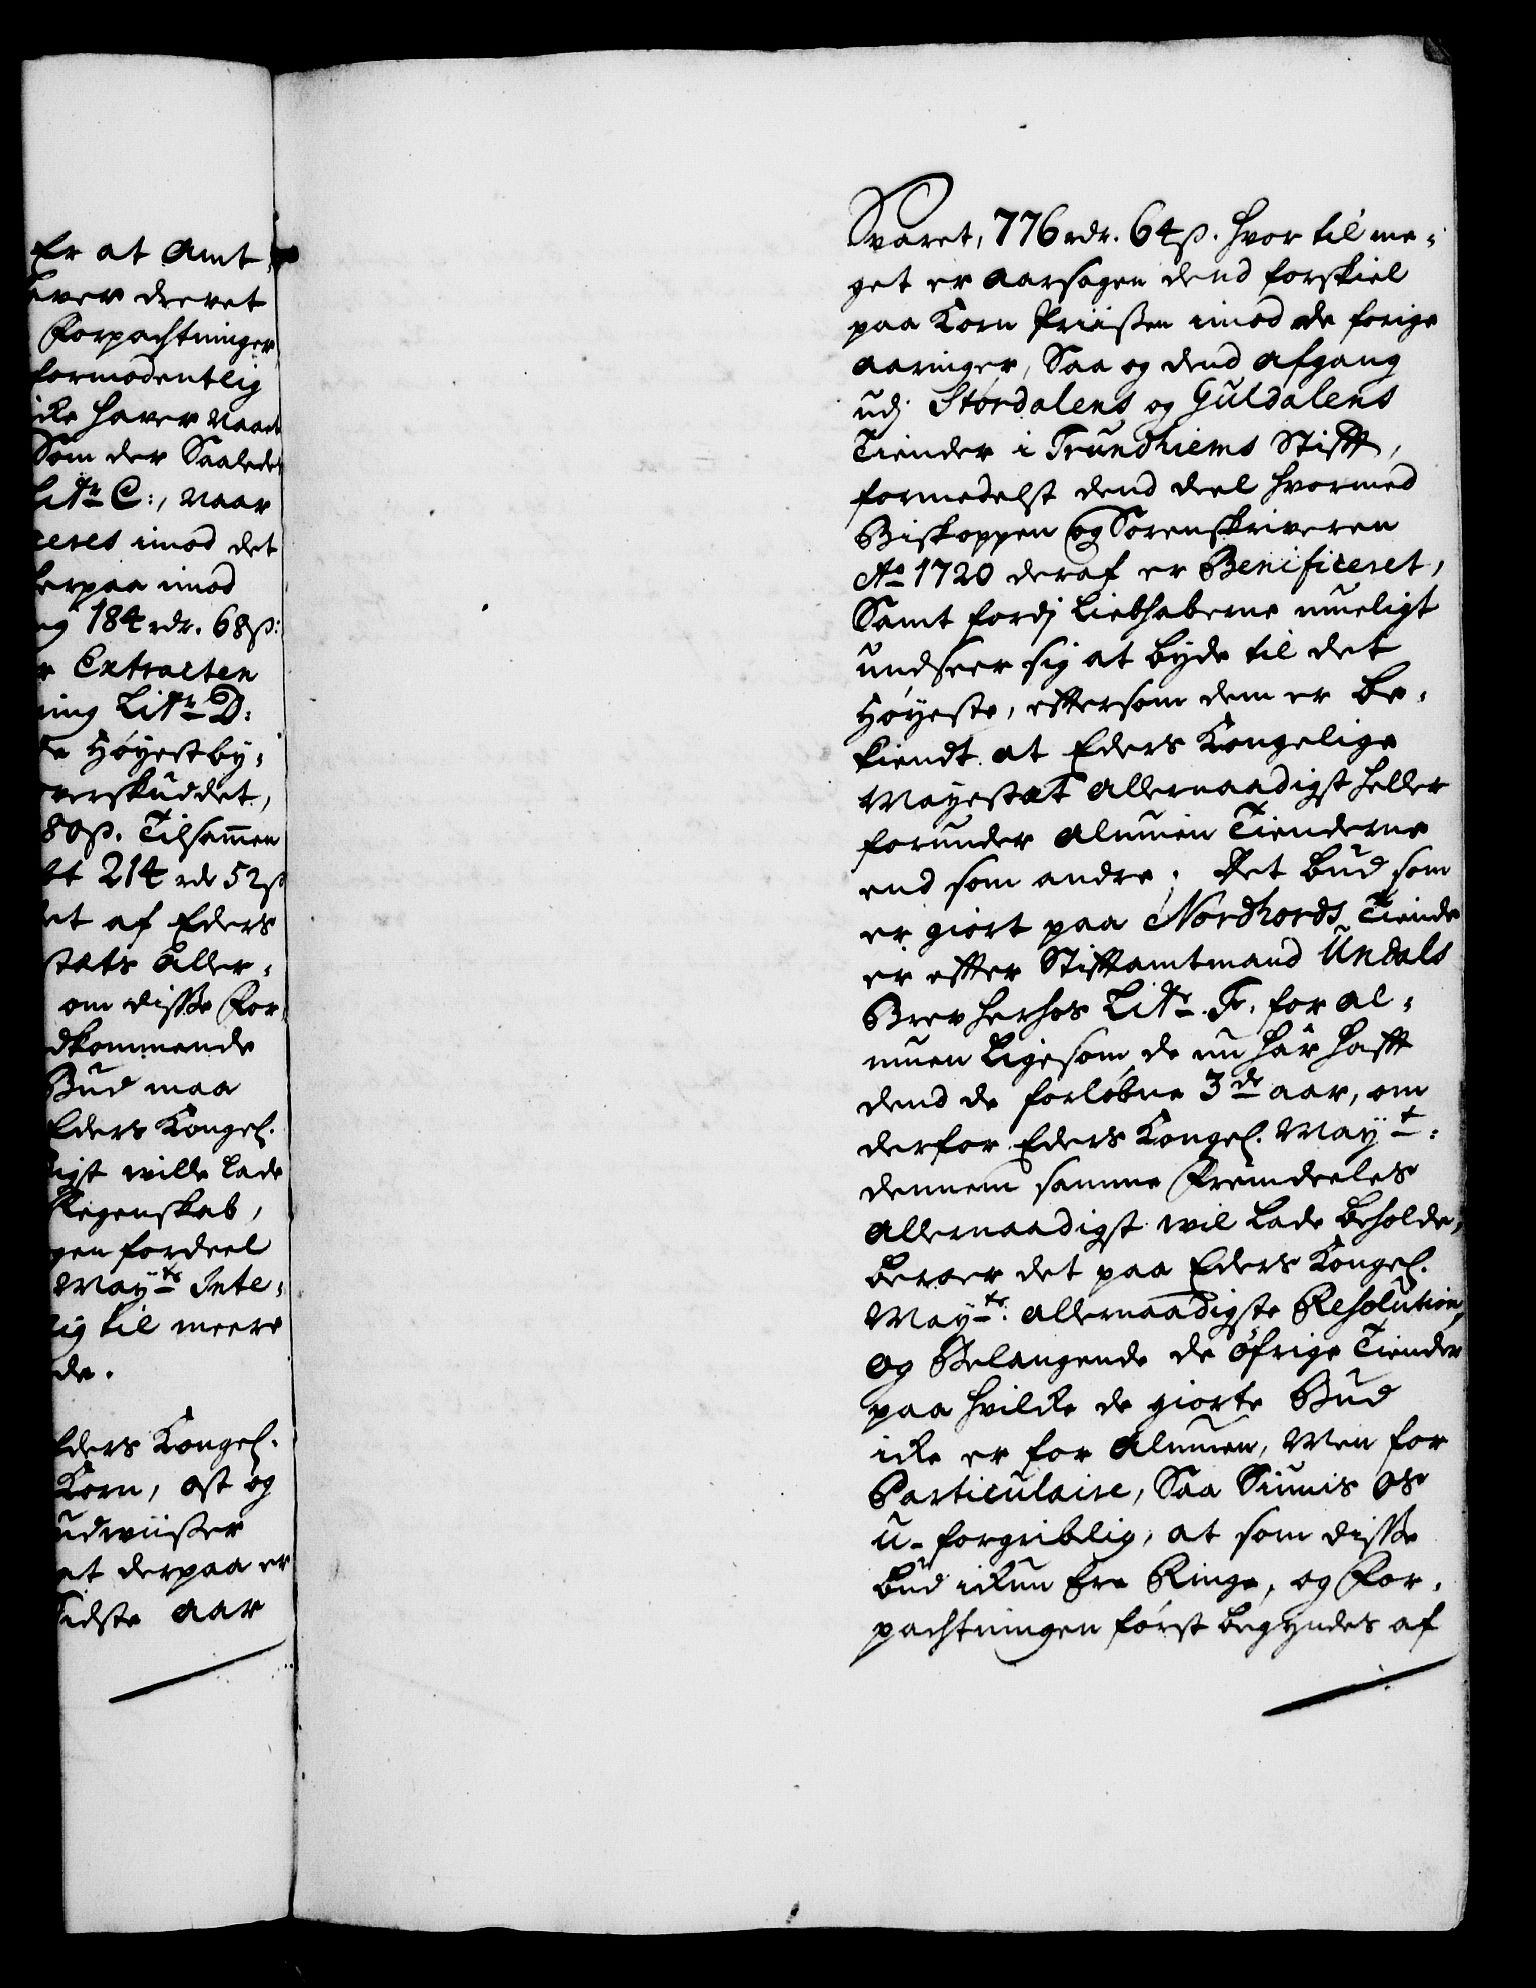 Er at Amt
ver drevet
Forpachtninger
formodentlig
icke hafver vaaret
Som der Saaledes
Litr C:, naar
ceres imod det
herpaa imod
og 184 rdr. 68 ß:
Extracten
ning Litr D:
Høyestby-
verskuddet,
80 ß. Tilsam̄en
214 rdr 52 ß
det af Eders
stæts Aller-
om disse For-
dkommende
Bud maa
Eders Kongel.
igst wille lade
Regenskab,
gen fordeel
Mayts Inte-
lig til meere
de.
Eders Kongel.
Korn, ost og
udwiißer
at derpaa er
Sidste Aar
Svaret, 776 rdr. 64 ß. hvor til me-
get er aarsagen dend forskiel
paa Korn Priißen imod de forige
aaringer, Saa og dend afgang
udj Stördalens og Guldalens
Tiender i Trundhiems Stifft,
formedelst dend deel hvormed
Biskoppen og Sorenskriveren
Ao 1720 deraf er Benificeret,
Samt fordj Liebhaberne mueligt
undseer sig at byde til det
Høyeste, efftersom dem er be-
kiendt at Eders Kongelige
Mayestæt Allernaadigst heller
forunder Almuen Tienderne
end som andre; Det bud som
er giort paa Nordhords Tiende
er effter Stifftamtmand Undals
Brev herhos Litr. F. for al-
muen ligesom de nu här hafft
dend de forløbne 3de aar, om
derfor Eders Kongel. Mayt:
dennem samme Fremdeeles
Allernaadigst wil lade beholde,
beroer det paa Eders Kongel.
Mayts: allernaadigste Resolution,
og Belangende de øfrige Tiender
paa hvilcke de giorte Bud
icke er for Almuen, Men for
Particulaire, Saa Siunis os
u-forgribelig, at som disse
bud ickun Ere Ringe, og For-
pachtningen først begyndes af